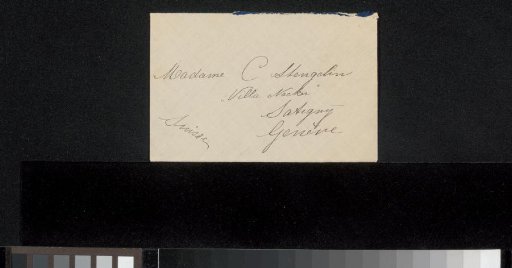 Madame C Stengelin
Villa
Satigny
Genève
Suisse